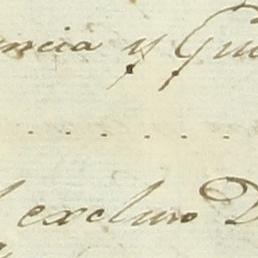 encia y Gu
l excluso D